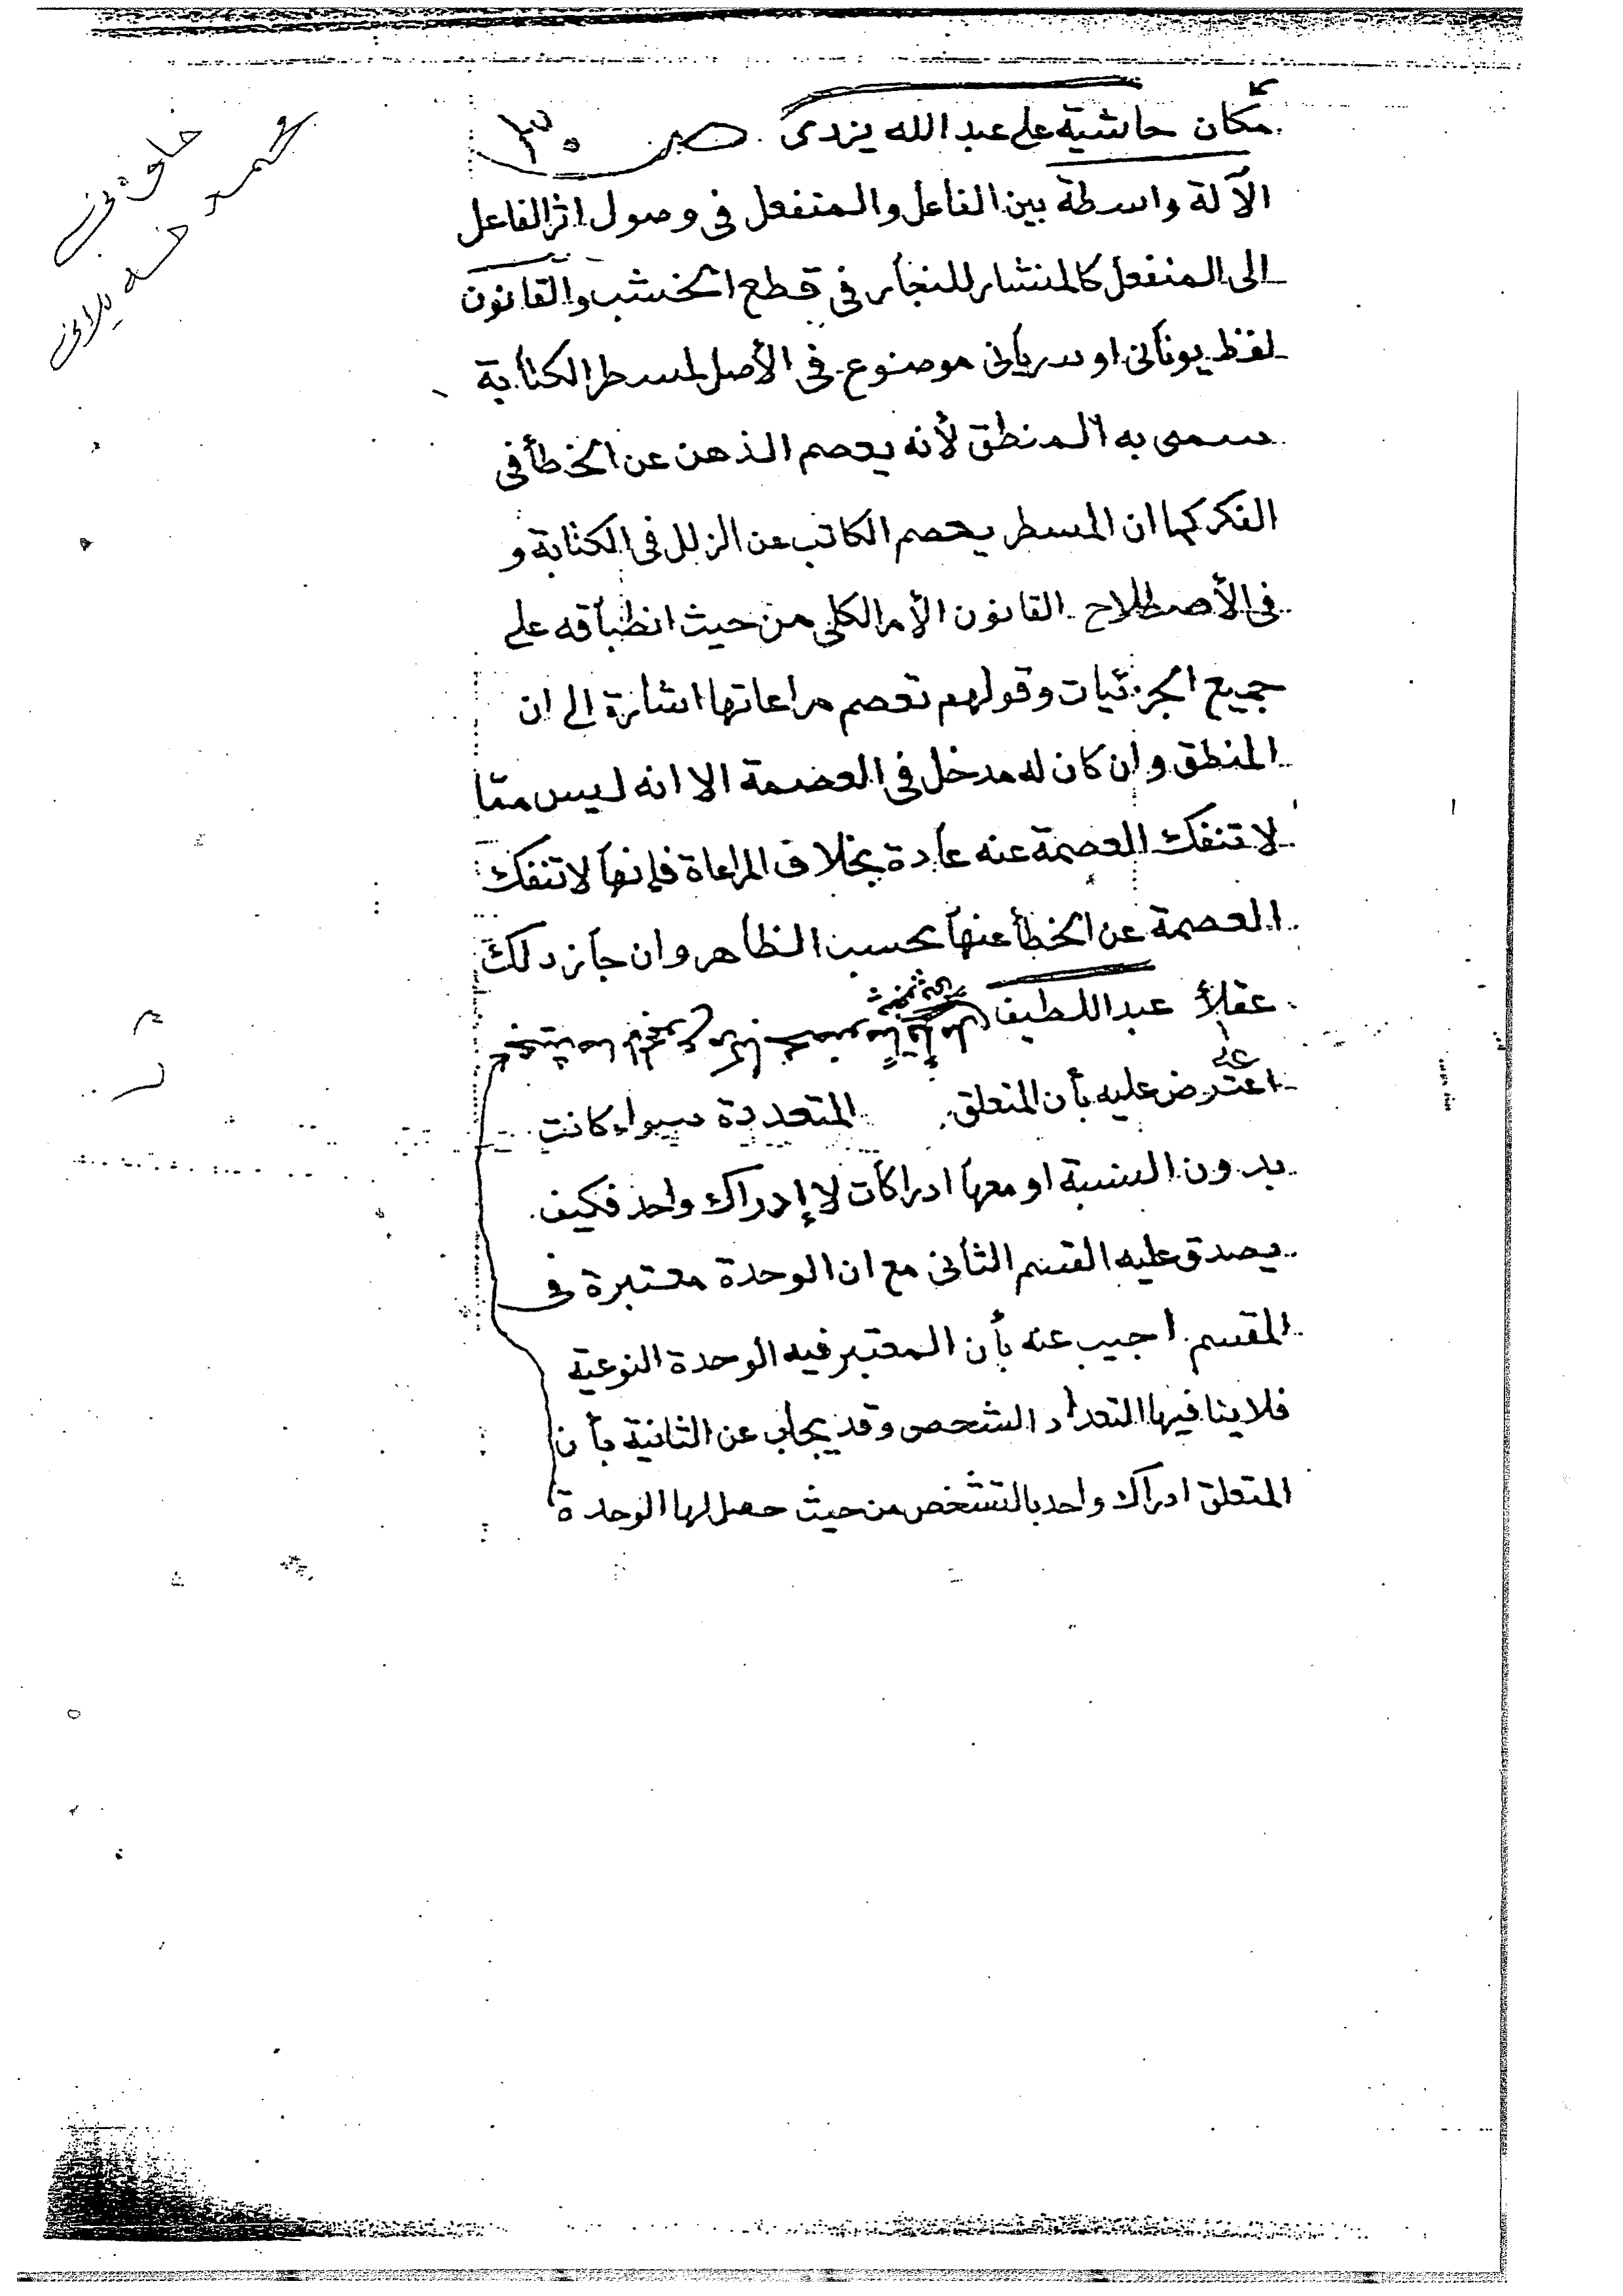 مكان حاشية على عبد الله يزدى ص ٣٠
الآلة واسطة بين الفاعل والمنفعل فى وصول اثر الفاعل
الى المنفعل كالمنشار للنجار فى قطع الخشب والقانون
لفظ يونانى او سريانى موضوع فى الأصل لمسطر الكتابة
سمى به المنطق لأنه يعصم الذهن عن الخطأ فى
الفكر كما ان المسطر يعصم الكاتب عن الزلل فى الكتابة و
فى الأصطلاح القانون الأمر الكلى من حيث انطباقه على
جميع الجزئيات وقولهم تعصم مراعاتها اشارة الى ان
المنطق وان كان له مدخل فى العصمة الا انه ليس ممّا
لا تنفك العصمة عنه عادة بخلاف المراعاة فإنها لا تنفك
العصمة عن الخطأ عنها بحسب الظاهر وان جاز ذلك
عقلاً عبد اللطيف
اعترض عليه بأن المتعلق المتعددة سواء كانت
بدون النسبة او معها ادراكات لا إدراك واحد فكيف
يصدق عليه القسم الثانى مع ان الوحدة معتبرة فى
المقسم اجيب عنه بأن المعتبر فيه الوحدة النوعية
فلا ينافيها التعداد الشخص وقد يجاب عن الثانية بأن
المتعلق ادراك واحد بالتشخص من حيث حصل لها الوحدة